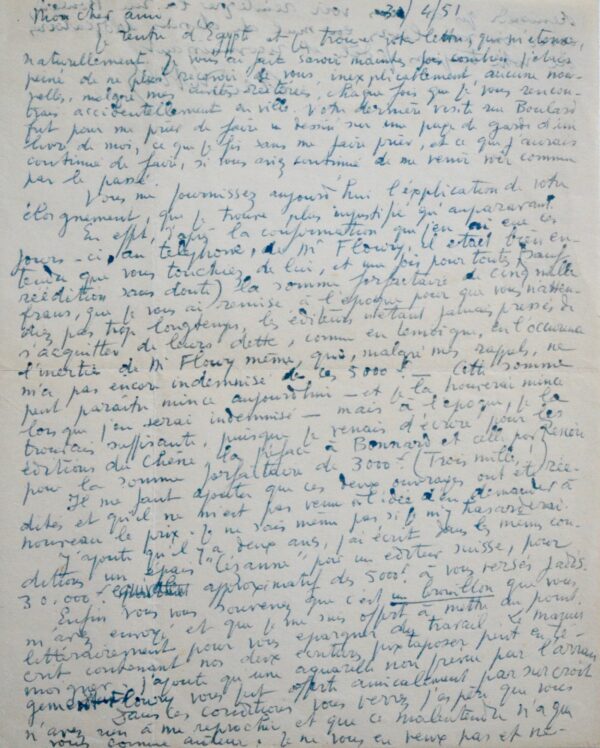 Mon cher ami 30/4/51
Je rentre d'Egypt et je trouve votre lettre, qui m'etonne,
naturellement. Je vous ai fait savoir maintes fois combien j'etais
peiné de ne plus recevoir de vous, inexplicablement, aucune nou-
velles, malgré mes invites réitérées, chaque fois que je vous rencon-
trais accidentellement en ville. Votre dernière visite rue Boulard
fut pour me prier de faire un dessin sur une page de garde d'un
livre de moi, ce que je fis sans me faire prier, et ce que j'aurais
continué de faire, si vous aviez continué de me venir voir comme
par le passé.
Vous me fournissez aujourd'hui l'éxplication de votre
éloignement, que je trouve plus injustifié qu'auparavant.
En effet, d'après la confirmation que j'en ai eue ces
jours-ci, au téléphone, de Mr Floury, il était bien en-
tendu que vous touchiez de lui, et une fois pour toutes (sauf
réédition sans doute) la somme forfaitaire de cinq mille
francs, que je vous ai remise à l'époque pour que vous n'atten-
diez pas trop longtemps, les éditeurs n'étant jamais pressés de
s'acquitter de leurs dette, comme en témoigne, en l'occurence
l'inertie de Mr Floury même, qui, malgré mes rappels, ne
m'a pas encore indemnisé de ces 5000f. — Cette somme
peut paraître mince aujourd'hui — et je la trouverai mince
lorsque j'en serai indemnisé — mais à l'époque, je la
trouvais suffisante, puisque je venais d'écrire pour les
éditions du Chêne la préface à Bonnard et celle pour Renoir
pour la somme forfaitaire de 3000f. (Trois mille)
Il me faut ajouter que ces deux ouvrages ont été réé-
dités et qu'il ne m'est pas venu à l'idée d'en demander à
nouveau le prix. Je ne sais même pas si je m'y hasarderai.
J'ajoute qu'il y a deux ans, j'ai écrit dans les mêmes con-
dittons un épais "Cézanne" pour un éditeur suisse, pour
30.000f. approximatif des 5000f. à vous versés jadis.
Enfin vous vous souvenez que c'est un brouillon que vous
m'avez envoyé et que je me suis offert à mettre au point
littérairement pour vous épargner du travail. Le manus
crit contenant nos deux écritures juxtaposées peut en té-
moigner. J'ajoute qu'une aquarelle non prévue par l'arran
gement Floury vous fut offert amicalement par surcroit
Dans les conditions vous verrez j'espère que vous
n'avez rien à me reprocher et que ce malentendu n'a que
vous comme auteur. Je ne vous en veux pas et ne-